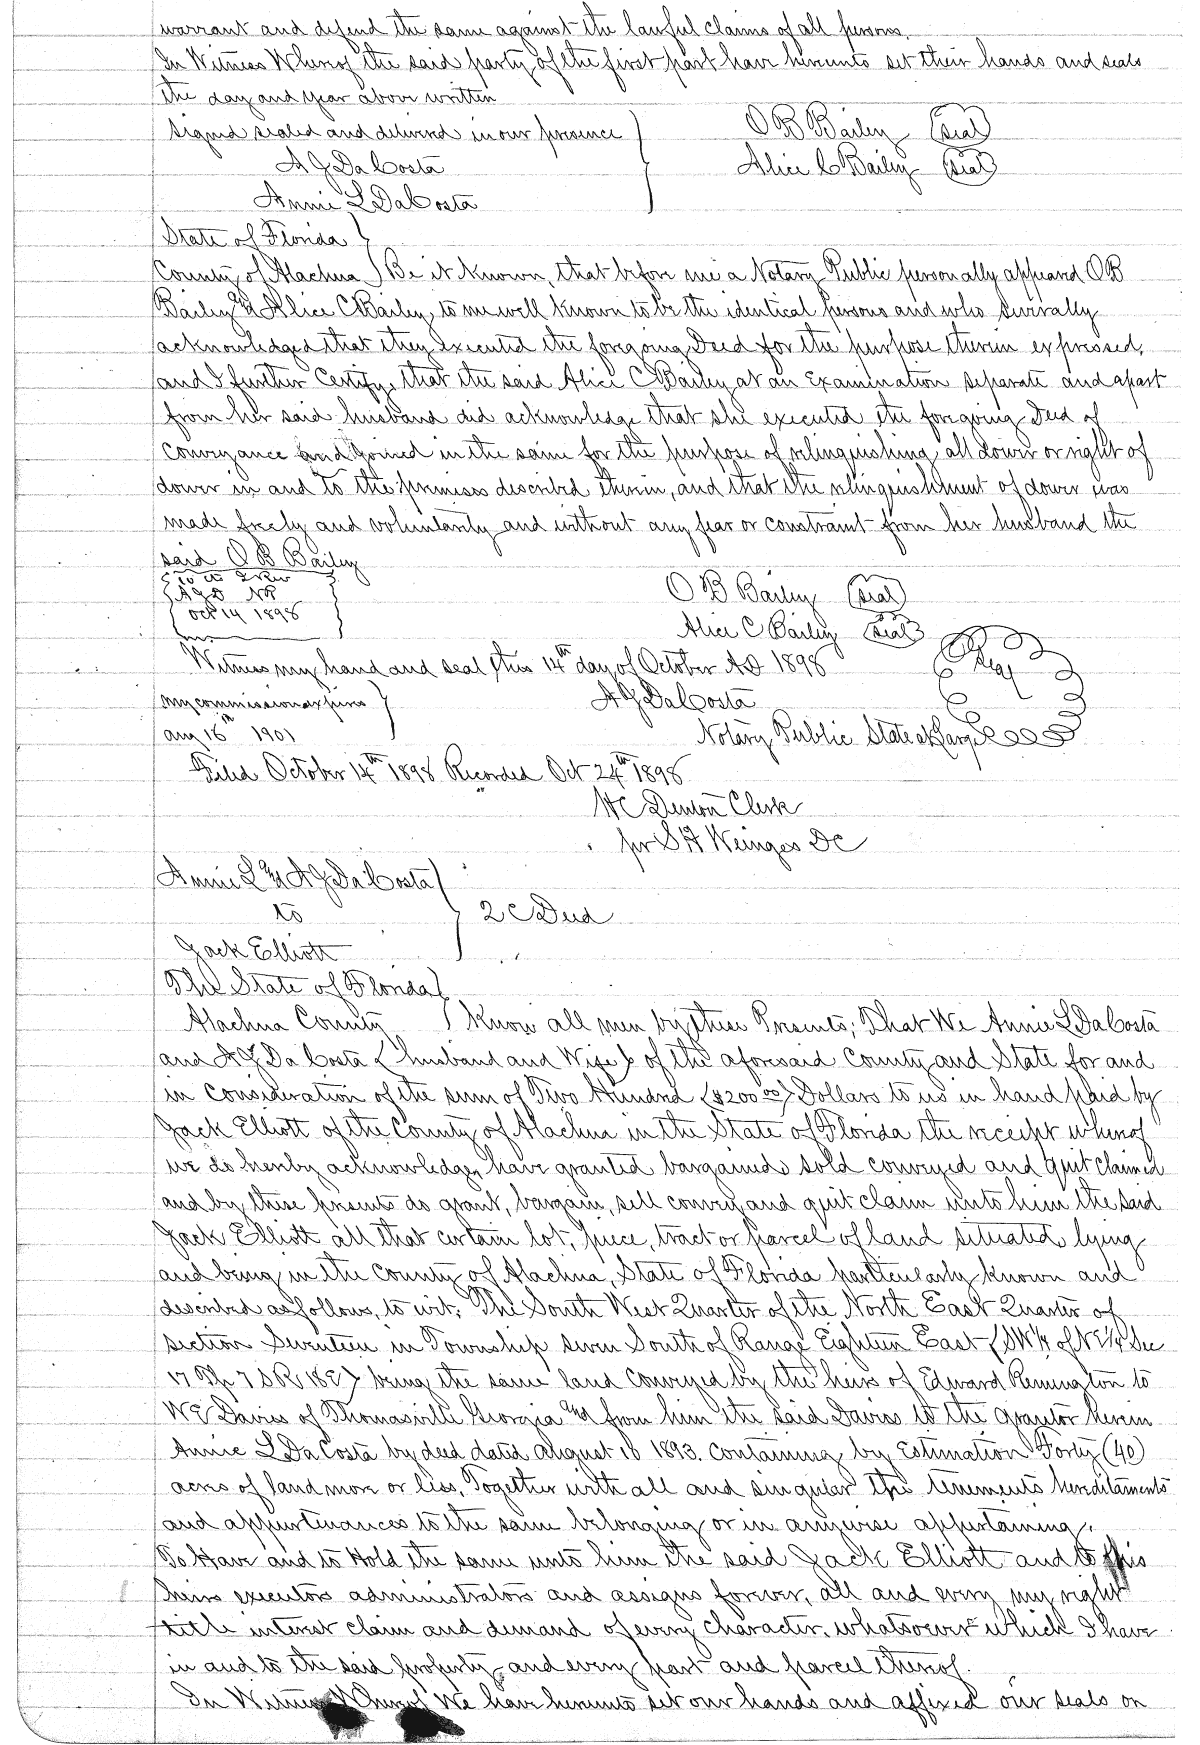 warrant and defend the same against the lawful claims of all persons.
In Witness Whereof the said party of the first part have hereunto set their hands and seals
the day and year above written
Signed sealed and delivered in our presence } O B Bailey (seal)
A J DaCosta Alice C Bailey (seal)
Annie L DaCosta
State of Florida }
County of Alachua } Be it Known, that before me a Notary Public personally appeared O B
Bailey & Alice C Bailey, to me well known to be the identical persons and who severally
acknowledged that they executed the foregoing Deed for the purpose therein expressed,
and I further Certify, that the said Alice C Bailey at an Examination separate and apart
from her said husband did acknowledge that she executed the foregoing Deed of
Conveyance and joined in the same for the purpose of relinquishing all dower or right of
dower in and to the premises described therein, and that the relinquishment of dower was
made freely and voluntarily and without any fear or constraint from her husband the
said O B Bailey
Oct 14 1898 O B Bailey (seal)
Alice C Bailey (seal)
Witness my hand and seal this 14th day of October AD 1898 Seal
my commission expires } A J DaCosta
aug 18th 1901 Notary Public State at Large
Filed October 14th 1898 Recorded Oct 24th 1898
H C Denton Clerk
per S H Weinges DC
Annie L & A J DaCosta }
to } 2 C Deed
Jack Elliott
The State of Florida }
Alachua County } Know all men by these Presents; That We Annie L DaCosta
and A J DaCosta (husband and Wife) of the aforesaid County and State for and
in consideration of the sum of Two Hundred ($200.00) Dollars to us in hand paid by
Jack Elliott of the County of Alachua in the State of Florida the receipt whereof
we do hereby acknowledge, have granted bargained sold conveyed and quit claimed
and by these presents do grant, bargain, sell convey and quit claim unto him the said
Jack Elliott all that certain lot, piece, tract or parcel of land situated lying
and being in the County of Alachua, State of Florida particularly known and
described as follows, to wit; The South West Quarter of the North East Quarter of
section Seventeen in Township seven South of Range Eighteen East (SW¼ of NE¼ Sec
17 Tp 7 S R 18 E) being the same land conveyed by the heirs of Edward Remington to
W E Davies of Thomasville Georgia & from him the said Davies to the Grantor herein
Annie L DaCosta by deed dated August 18 1893. Containing by Estimation Forty (40)
acres of land more or less, Together with all and singular the tenements hereditaments
and appurtenances to the same belonging or in anywise appertaining.
To Have and to Hold the same unto him the said Jack Elliott and to his
heirs executors administrators and assigns forever, all and every my right
title interest claim and demand of every character, whatsoever which I have
in and to the said property, and every part and parcel thereof.
In Witness Whereof We have hereunto set our hands and affixed our seals on